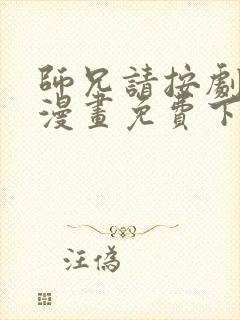 師兄請按劇
漫畫免費下
汪偽